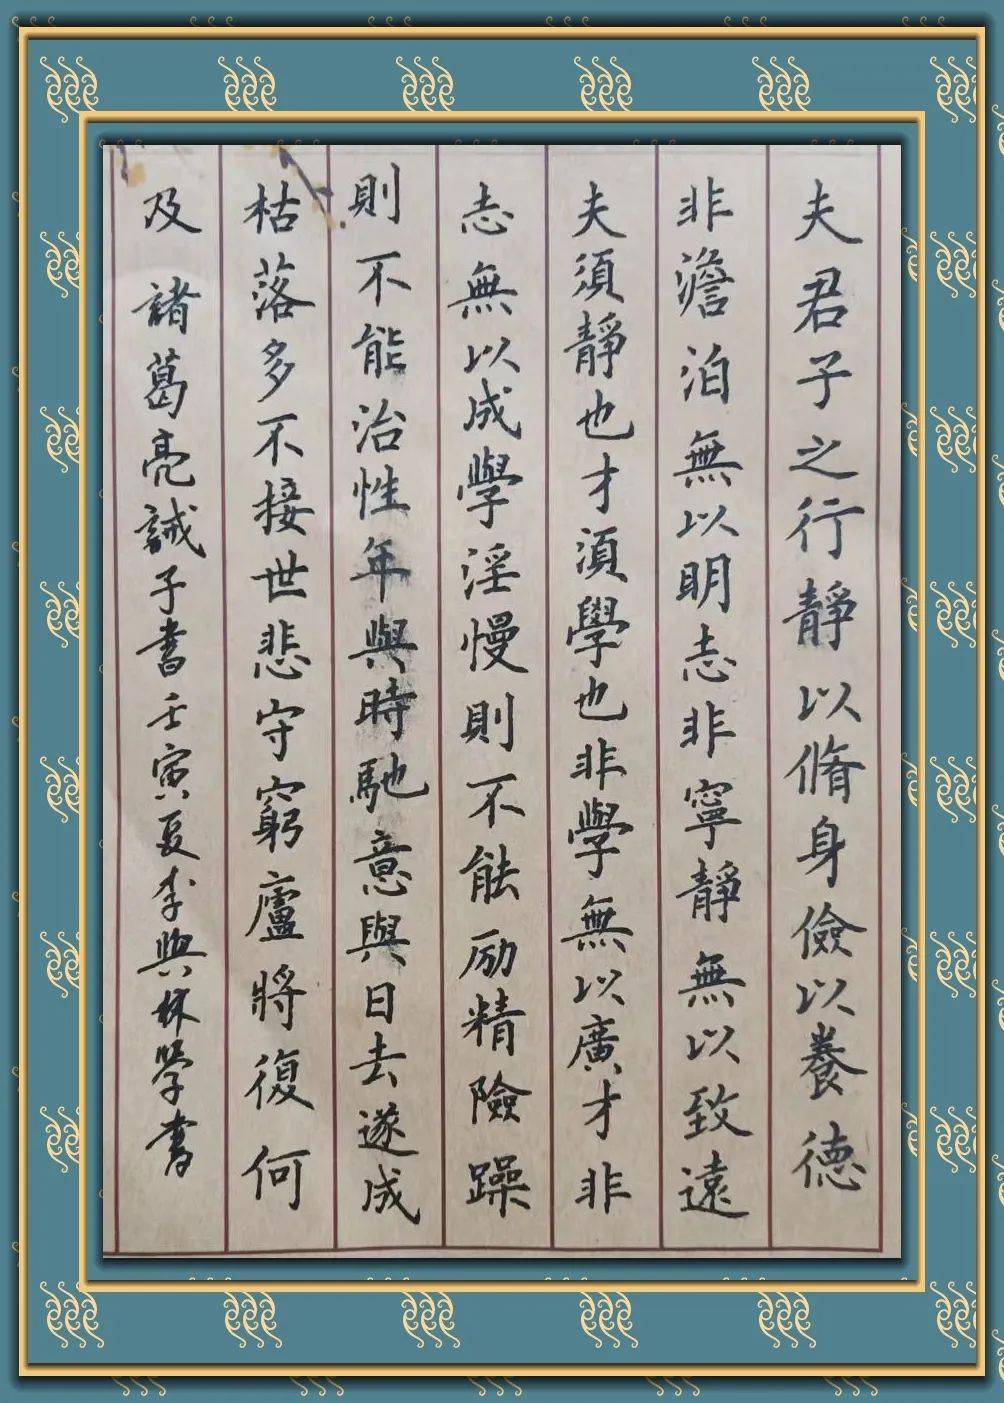 夫君子之行靜以脩身儉以養德
非澹泊無以明志非寧靜無以致遠
夫須靜也才須學也非學無以廣才非
志無以成學淫慢則不能励精險躁
則不能治性年與時馳意與日去遂成
枯落多不接世悲守窮廬將復何
及 諸葛亮誡子書壬寅夏李興林學書